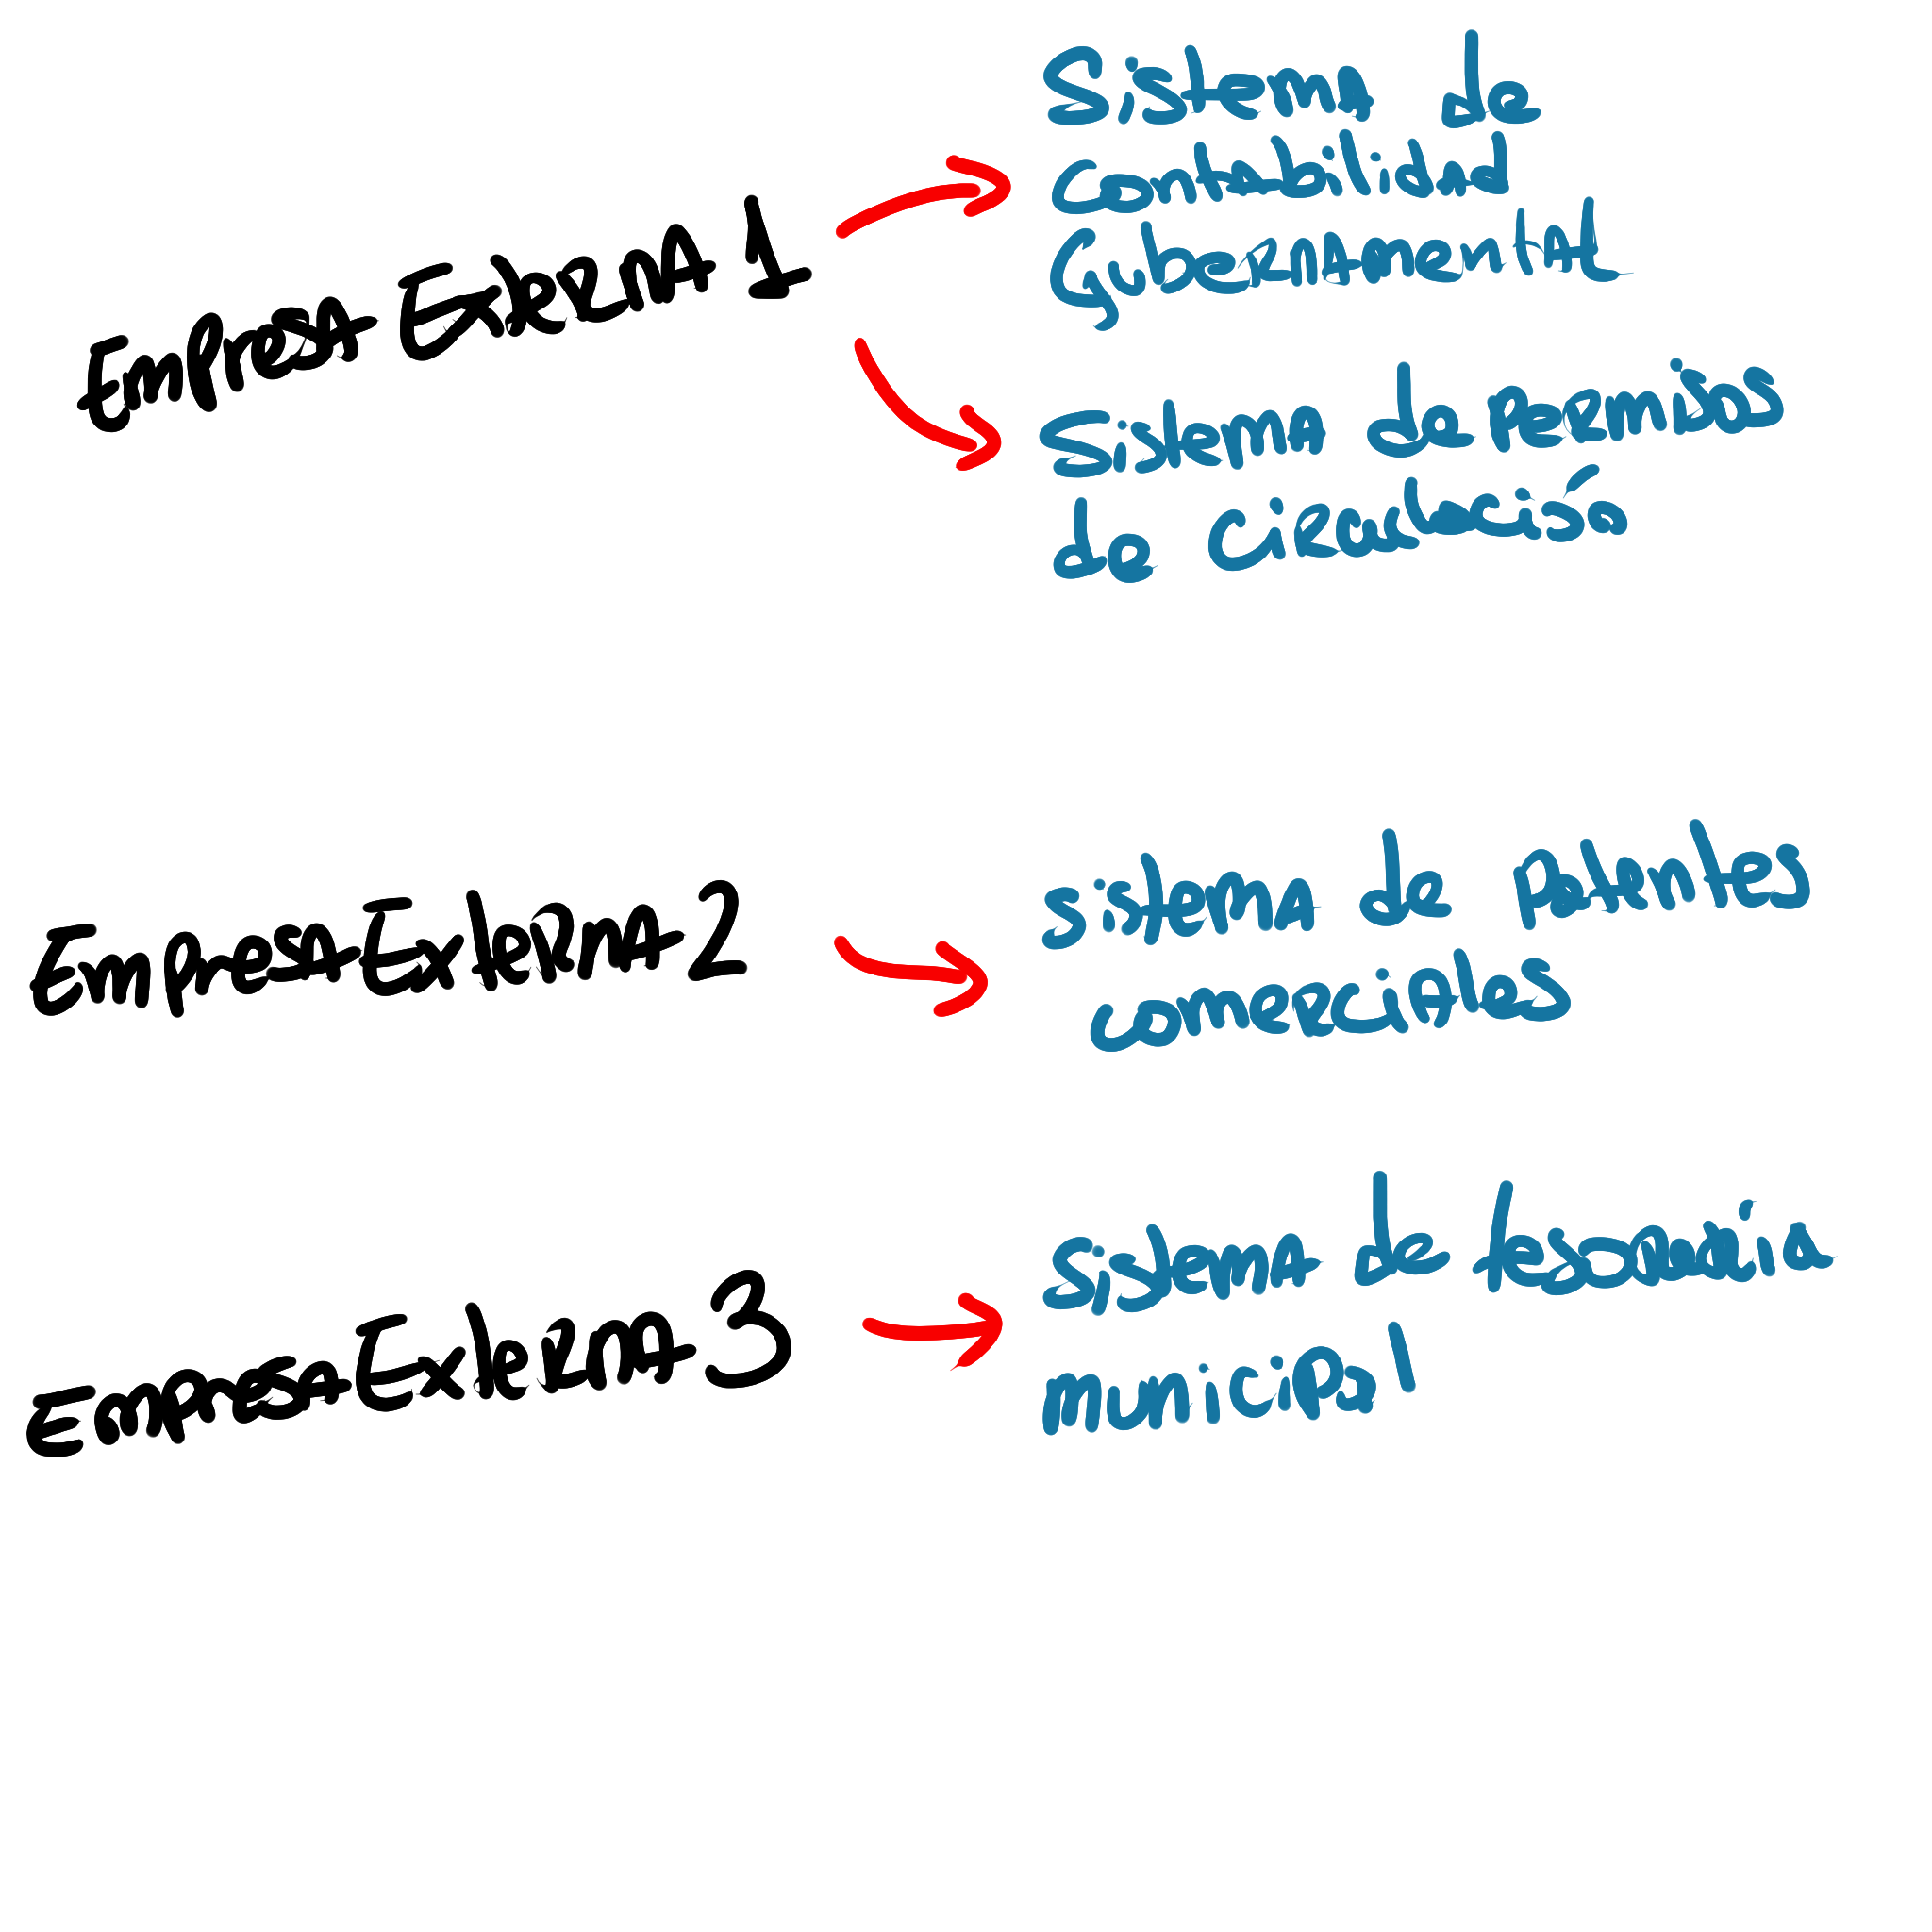 Empresa Externa 1
Sistema de
Contabilidad
Gubernamental
Sistema de permisos
de Circulación
Empresa Externa 2
sistema de Patentes
comerciales
Empresa Externa 3
Sistema de tesoreria
municipal